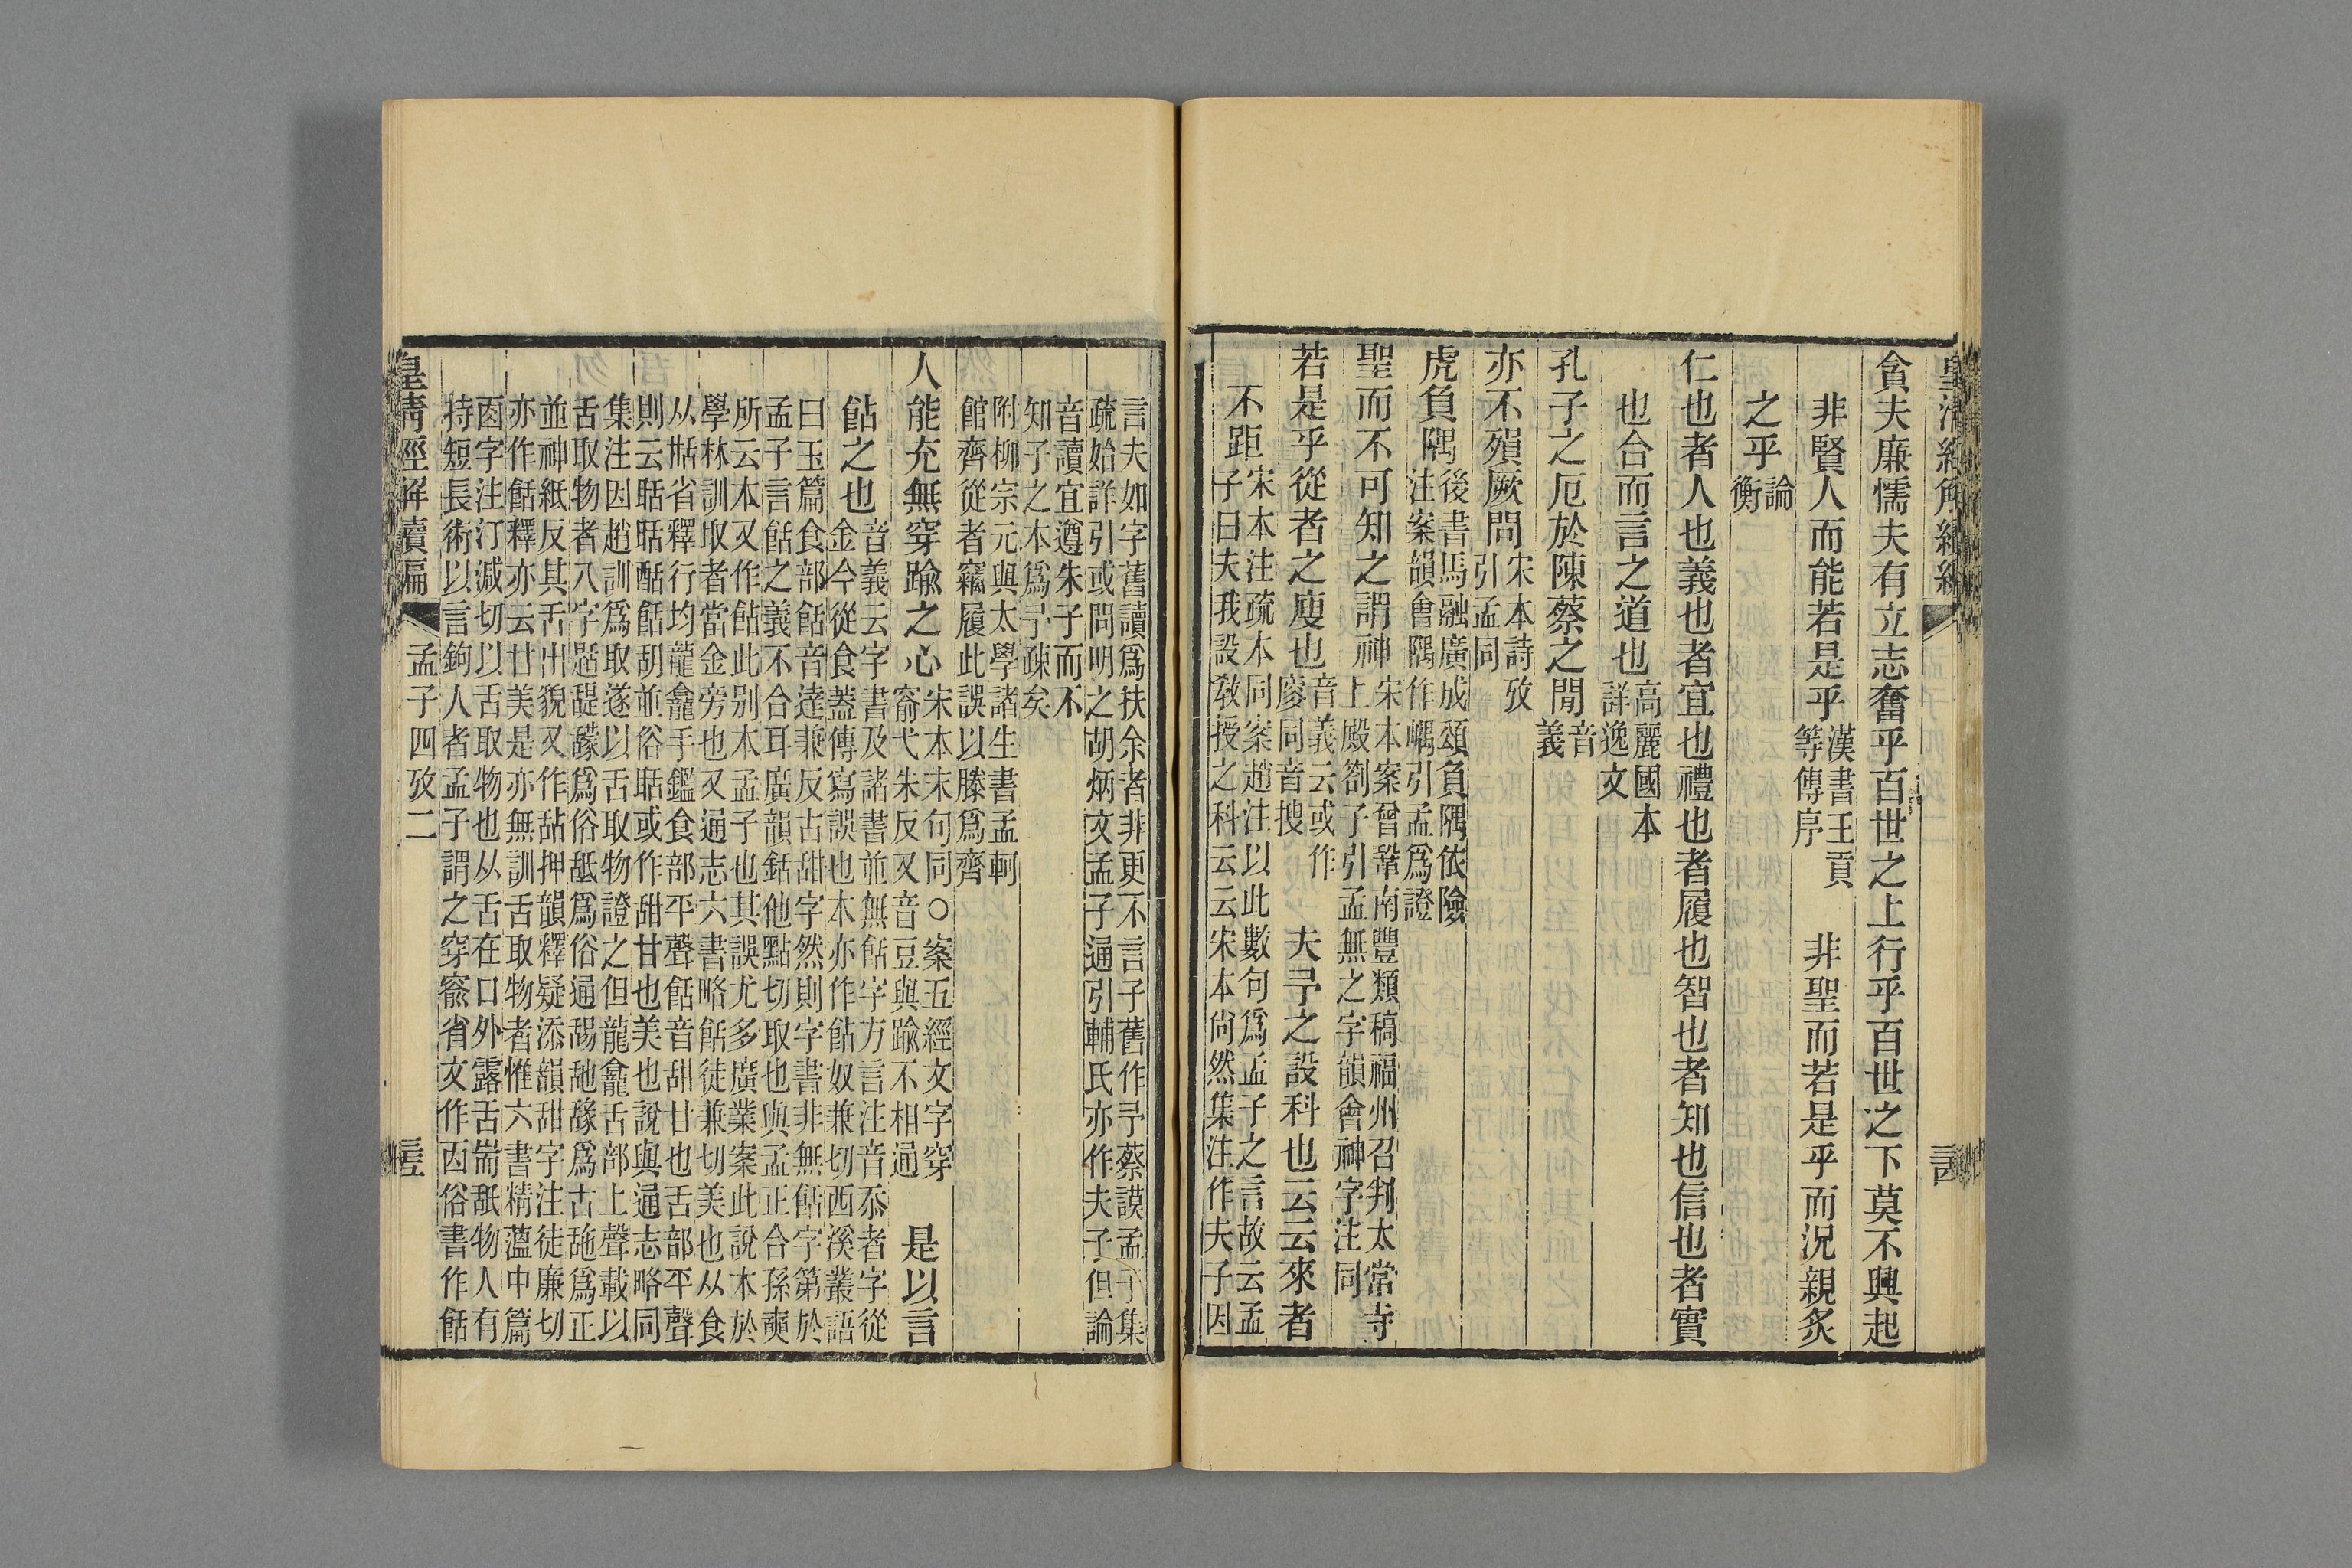 貪夫廉懦夫有立志奮乎百世之上行乎百世之下莫不興起
非賢人而能若是乎漢書王貢
等傳序非聖而若是乎而況親炙
之乎論
衡
仁也者人也義也者宜也禮也者履也智也者知也信也者實
也合而言之道也高麗國本
詳逸文
孔子之厄於陳蔡之閒音
義
亦不殞厥問宋本詩攷
引孟同
虎負隅後書馬融廣成頌負隅依險
注案韻會隅作嵎引孟爲證
聖而不可知之謂神宋本案曾鞏南豐類稿福州召判太常寺
上殿劄子引孟無之字韻會神字注同
若是乎從者之廋也音義云或作
廖同音搜夫予之設科也云云來者
不距宋本注疏本同案趙注以此數句爲孟子之言故云孟
子曰夫我設敎授之科云云宋本尙然集注作夫子因
言夫如字舊讀爲扶余者非更不言子舊作予蔡謨孟子集
疏始詳引或問明之胡炳文孟子通引輔氏亦作夫子但論
音讀宜遵朱子而不
知子之本爲予疎矣
附柳宗元與太學諸生書孟軻
館齊從者竊履此誤以滕爲齊
人能充無穿踰之心宋本末句同○案五經文字穿
窬弋朱反又音豆與踰不相通是以言
餂之也音義云字書及諸書並無餂字方言注音忝者字從
金今從食蓋傳寫誤也本亦作餂奴兼切西溪叢語
曰玉篇食部餂音達兼反古甜字然則字書非無餂字第於
孟子言餂之義不合耳廣韻銛他點切取也與孟正合孫奭
所云本又作餂此別本孟子也其誤尤多廣業案此說本於
學林訓取者當金旁也又通志六書略餂徒兼切美也从食
从甛省釋行均龍龕手鑑食部平聲餂音甜甘也舌部平聲
則云䑙䑙酟餂胡並俗䑙或作甜甘也美也說與通志略同
集注因趙訓爲取遂以舌取物證之但龍龕舌部上聲載以
並神紙反其舌出貌又作䑛押韻釋疑添韻甜字注徒廉切
亦作餂釋亦云甘美是亦無訓舌取物者惟六書精薀中篇
㐁字注汀減切以舌取物也从舌在口外露舌耑舐物人有
持短長術以言鉤人者孟子謂之穿窬省文作㐁俗書作餂
皇淸經解續編
孟子四攷二